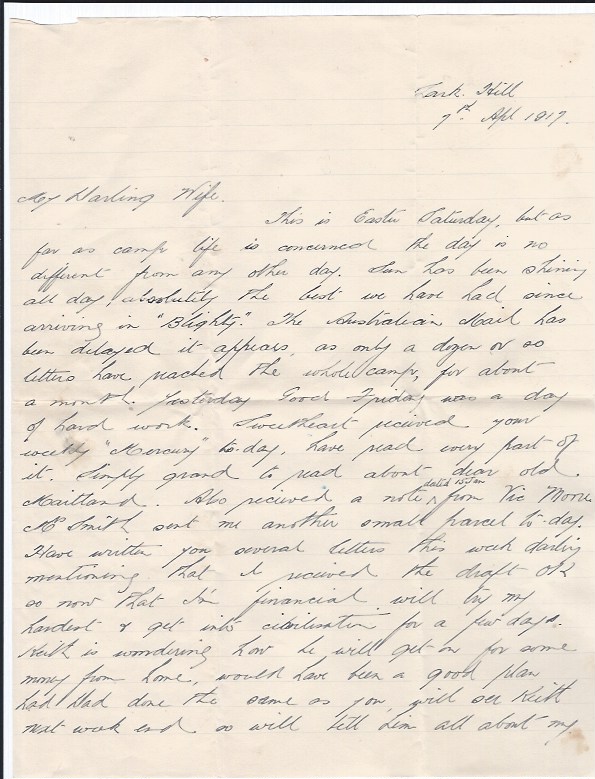 Lark Hill
7th Apl 1917.
My Darling Wife.
This is Easter Saturday, but as
far as camp life is concerned the day is no
different from any other day. Sun has been shining
all day, absolutely the best we have had since
arriving in "Blighty". The Australian Mail has
been delayed it appears as only a dozen or so
letters have reached the whole camp, for about
a month. Yesterday Good Friday was a day
of hard work. Sweetheart recieved your
weekly "Mercury" to-day, have read every part of
it. Simply grand to read about dear old
Maitland. Also recieved a note dat'd 15 Jan from Vic Moore
Mrs Smith sent me another small parcel to-day.
Have written you several letters this week darling
mentioning that I recieved the draft OK
so now that I'm financial will try my
hardest & get into civilisation for a few days.
Keith is wondering how he will get on for some
money from home, would have been a good plan
had Dad done the same as you, will see Keith
next week end so will tell him all about my